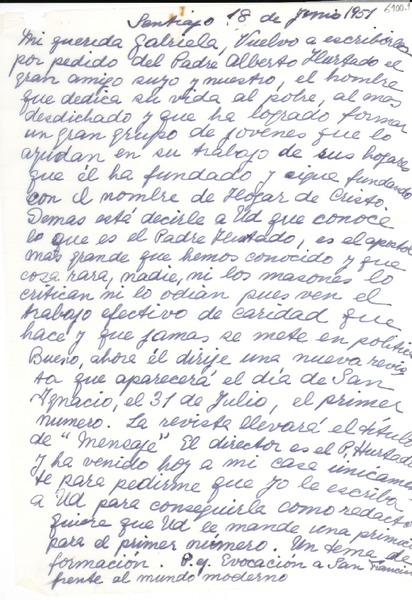 Santiago 18 de Junio 1951
Mi querida Gabriela, Vuelvo a escribirle
por pedido del Padre Alberto Hurtado el
gran amigo suyo y nuestro, el hombre
que dedica su vida al pobre, al mas
desdichado y que ha logrado formar
un gran grupo de jovenes que lo
ayudan en su trabajo de sus hogares
que él ha fundado y sigue fundando
con el nombre de Hogar de Cristo.
Demas está decirle a Ud que conoce
lo que es el Padre Hurtado, es el apostol
mas grande que hemos conocido y que
cosa rara, nadie, ni los masones lo
critican ni lo odian pues ven el
trabajo efectivo de caridad que
hace y que jamas se mete en politica
Bueno, ahora él dirije una nueva revis
ta que aparecerá el día de San
Ignacio, el 31 de Julio, el primer
numero. La revista llevará el titulo
de "Mensaje" El director es el P. Hurtado
y ha venido hoy a mi casa únicamen
te para pedirme que yo le escriba
a Ud para conseguirla como redactora
quiere que Ud le mande una primicia
para el primer número. Un tema de
formación. P. ej. Evocación a San Francisco
frente al mundo moderno